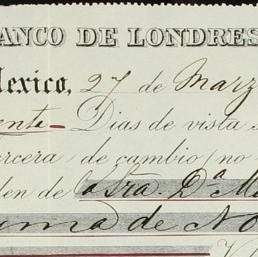 ANCO DE LONDRES
Mexico, 27 de Marz
enta Dias de vista s
ercera de cambio (no
den de nstra. Da. M
uma de No